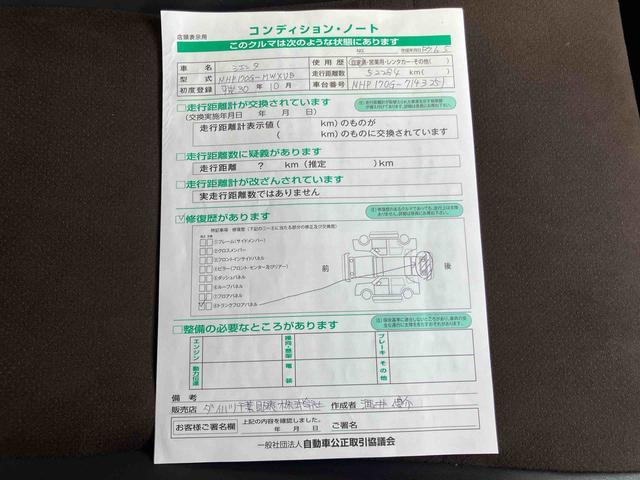 コンディション・ノート
店頭表示用
このクルマは次のような状態にあります
NO.
作成年月日 R7.6.5
車名 シエンタ
使用歴 自家用・営業用・レンタカー・その他( )
型式 NHP170G-MWXUB
走行距離数 52284 km( )
初度登録 平成30年10月
車台番号 NHP170G-7143251
□走行距離計が交換されています
(交換実施年月日 年 月 日)
走行距離計表示値( km)のものが
( km)のものに交換されています
□走行距離数に疑義があります
走行距離 ? km(推定 )km
□走行距離計が改ざんされています
実走行距離数ではありません
修復歴があります
検証車両 修復歴 (下記の①~⑧に当たる部分の修正及び交換歴)
①フレーム(サイドメンバー)
②クロスメンバー
③フロントインサイドパネル
④ピラー(フロント・センター及びリアー)
⑤ダッシュパネル
⑥ルーフパネル
⑦フロアパネル
⑧トランクフロアパネル
前
後
□整備の必要なところがあります
エンジン
操向・懸架
ブレーキ
動力伝達
電装
その他
備考
販売店 ダイハツ千葉販売株式会社 作成者
お客様ご署名欄
上記の内容を確認しました。
年 月 日
ご署名
一般社団法人 自動車公正取引協議会